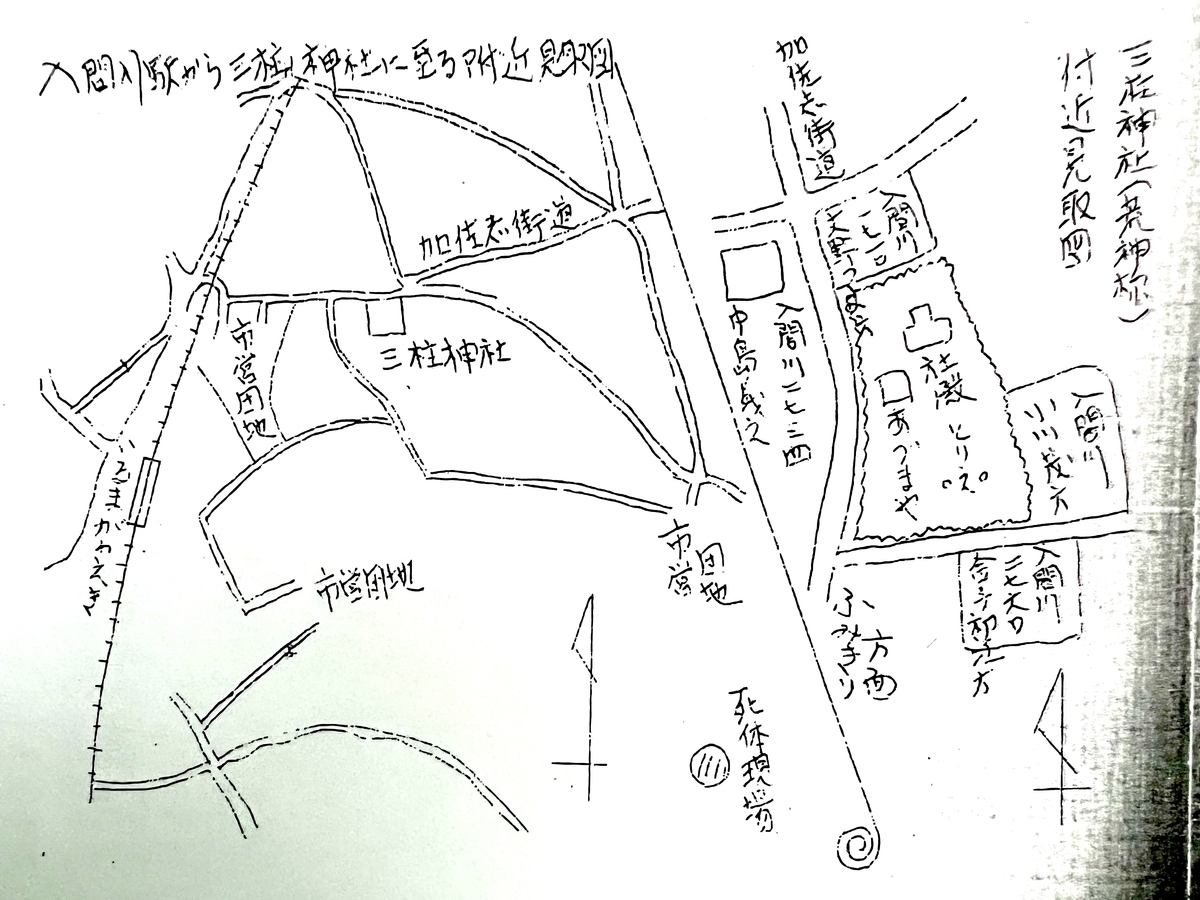 入間川駅から三柱神社に至る附近見取図
加佐志街道
三柱神社
市営団地
いるまがわえき
市営団地
市営
団地
三柱神社(荒神様)
付近見取図
加佐志街道
入間川
入間川二七三四
社殿
とりい
あづまや
入間川
入間川
ふみきり
方面
死体現場